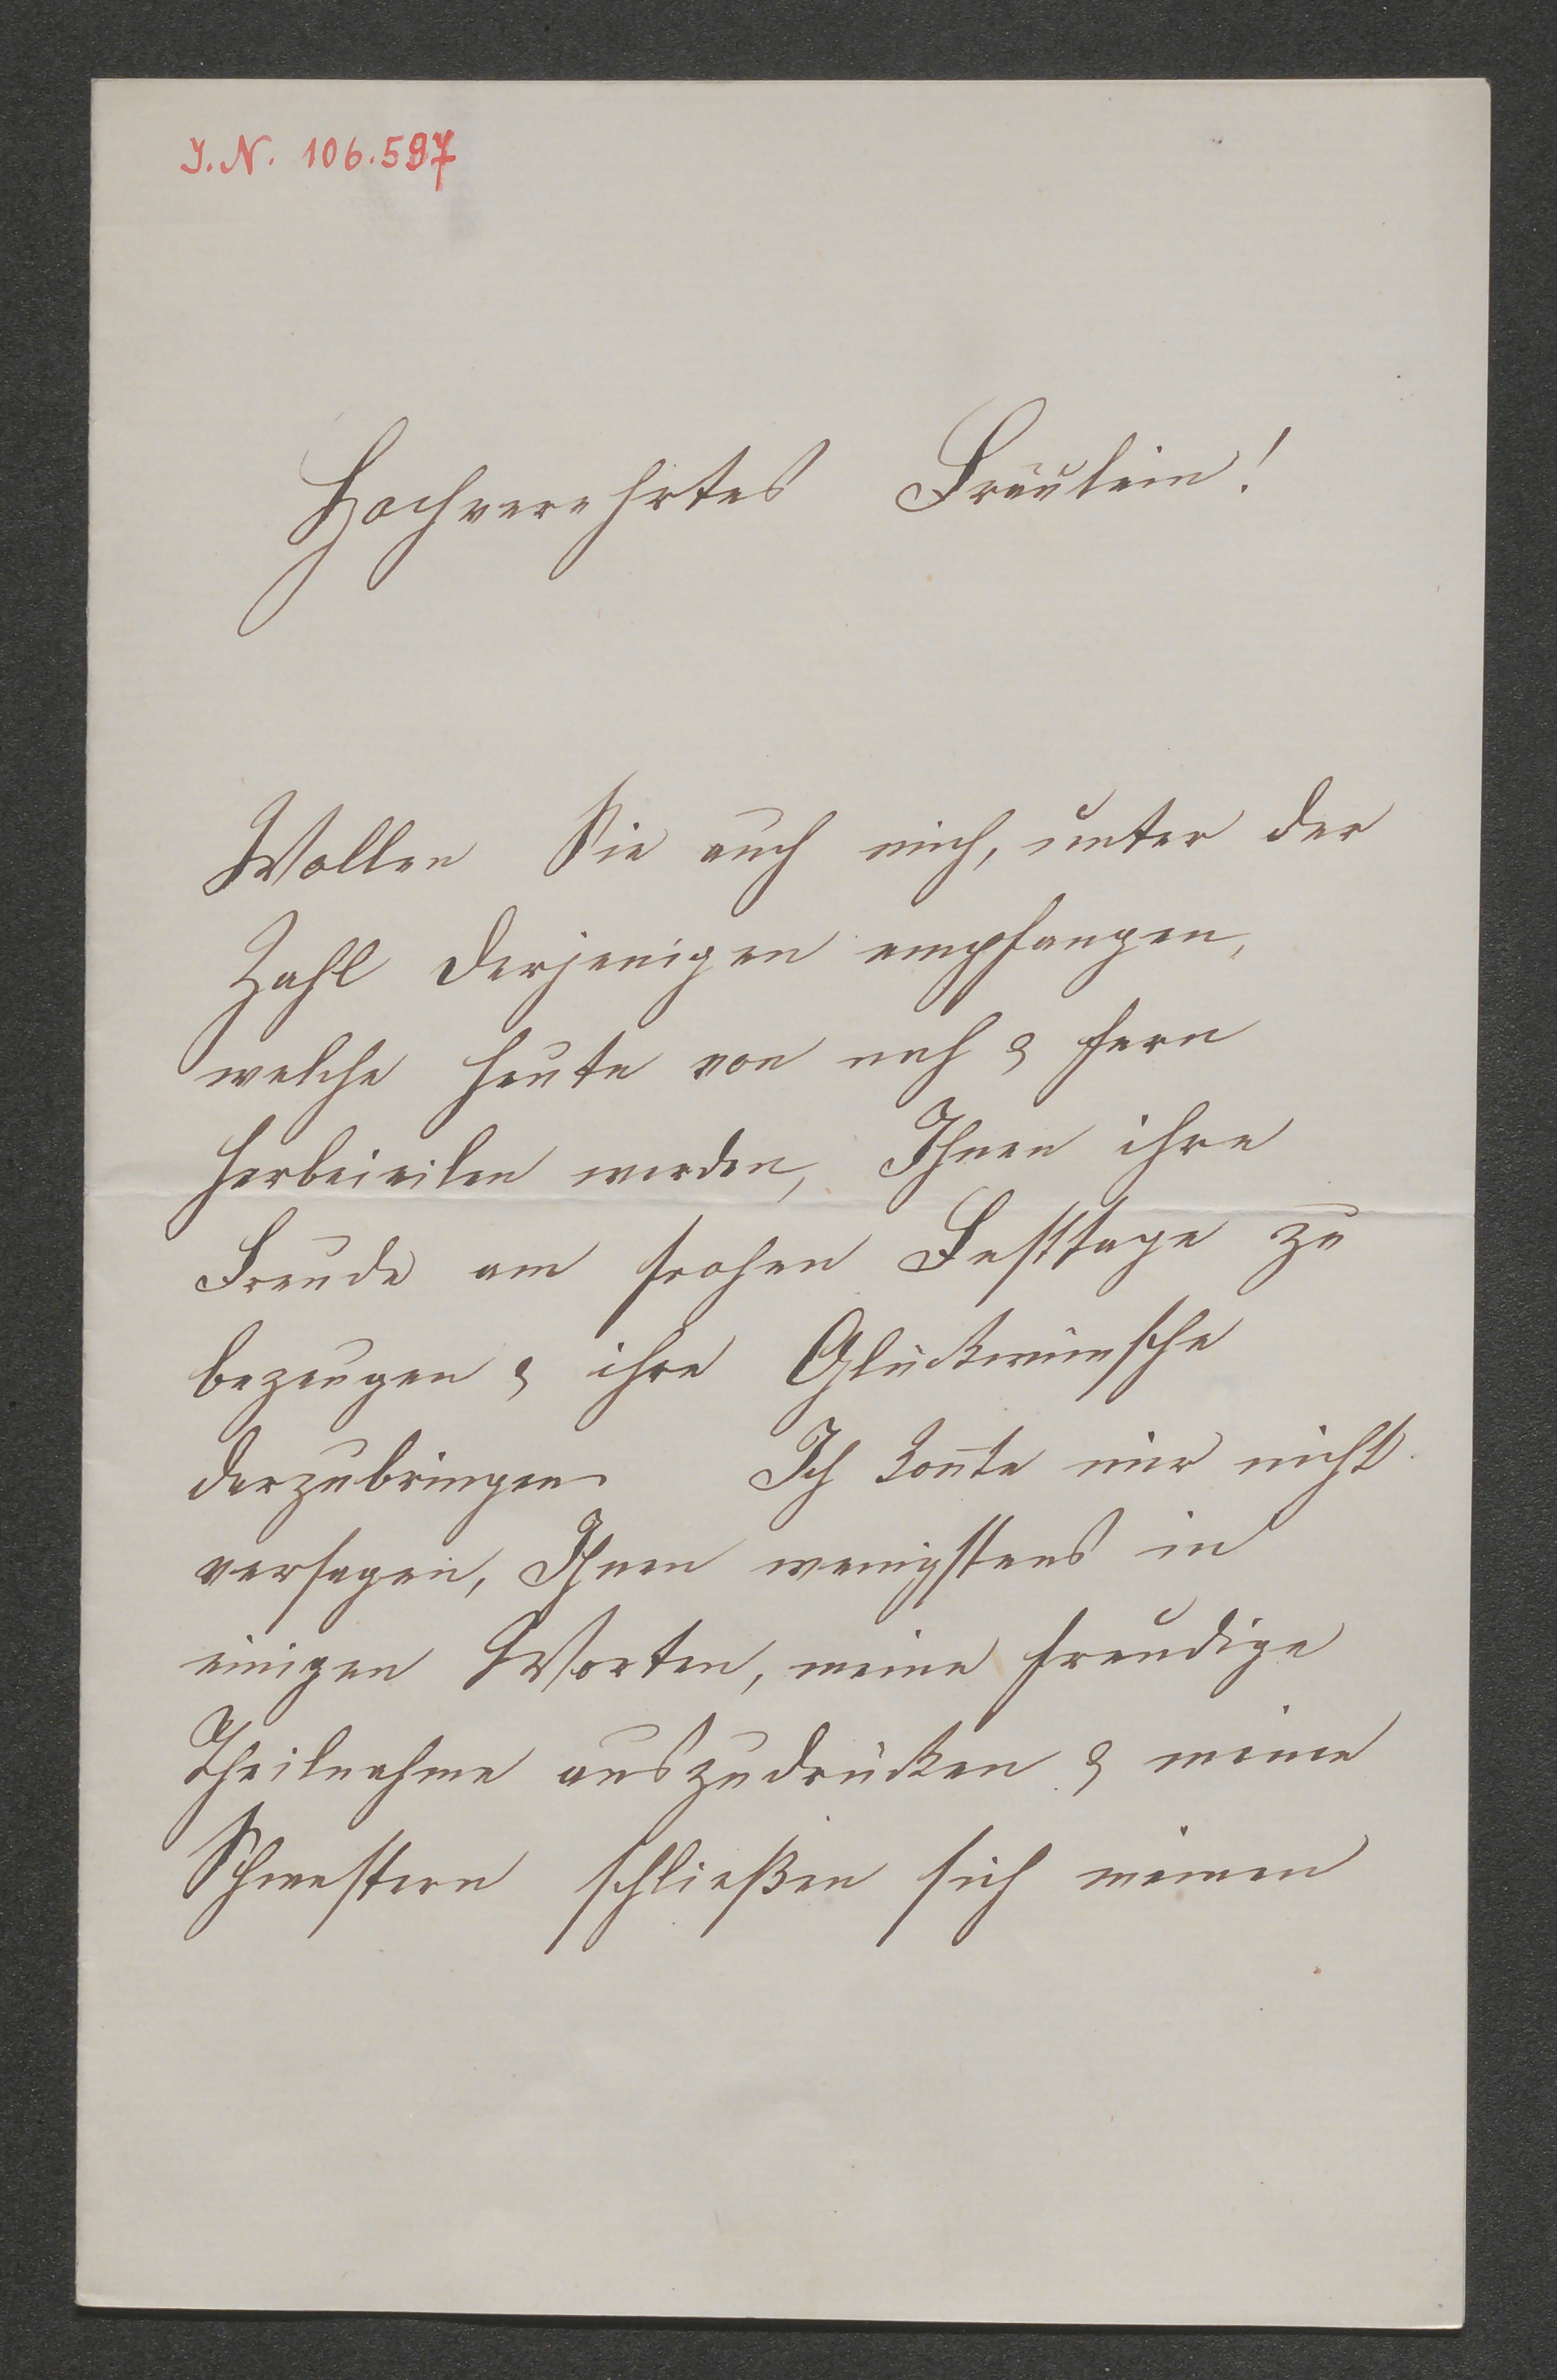 J. N. 106.597
Hochverehrtes Fräulein!
Wollen Sie auch mich, unter der
Zahl derjenigen empfangen,
welche heute von nah & fern
herbeieilen werden, Ihnen ihre
Freude am frohen Festtage zu
bezeugen & ihre Glückwünsche
darzubringen. Ich kon̄te mir nicht
versagen, Ihnen wenigstens in
einigen Worten, meine freudige
Theilnahme auszudrücken & meine
Schwestern schließen sich meinen